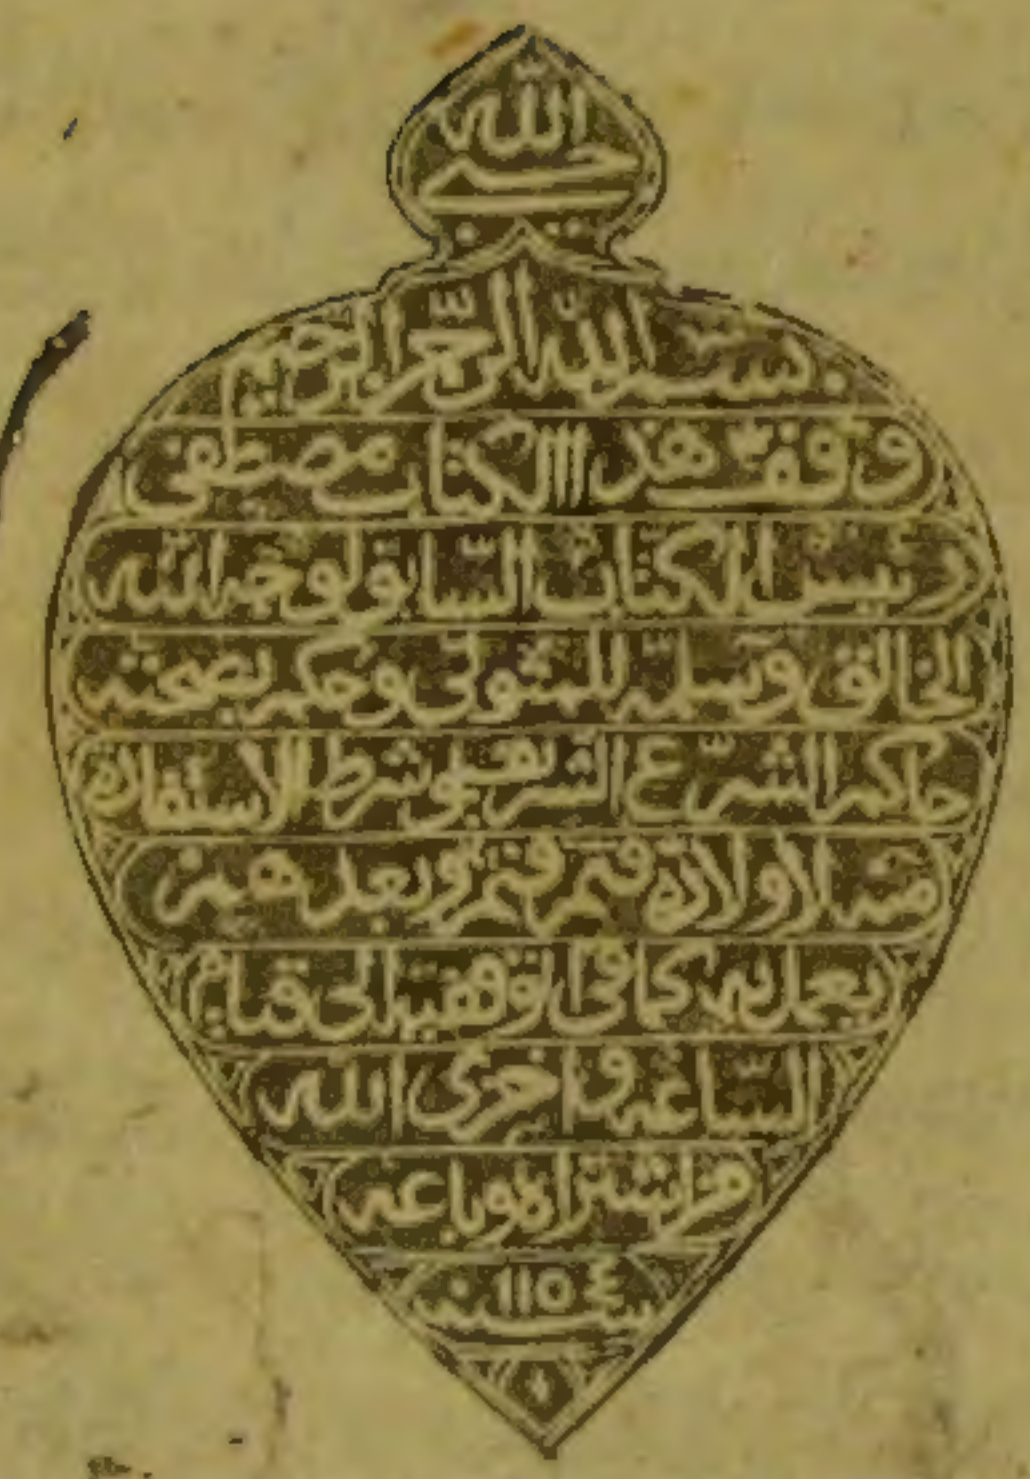 الله
حسبي
بسم الله الرحمن الرحيم
وقف هذا الكتاب مصطفى
رئيس الكتاب السابق لوجه الله
الخالق وسلمه للمتولى وحكم بصحته
حاكم الشرع الشريف وشرط الاستفادة
منه لاولاده ثم وبعدهم
يعمل به كما في الى قيام
الساعة واخزى الله
من اشتراه وباعه
سنة ١١٥٤